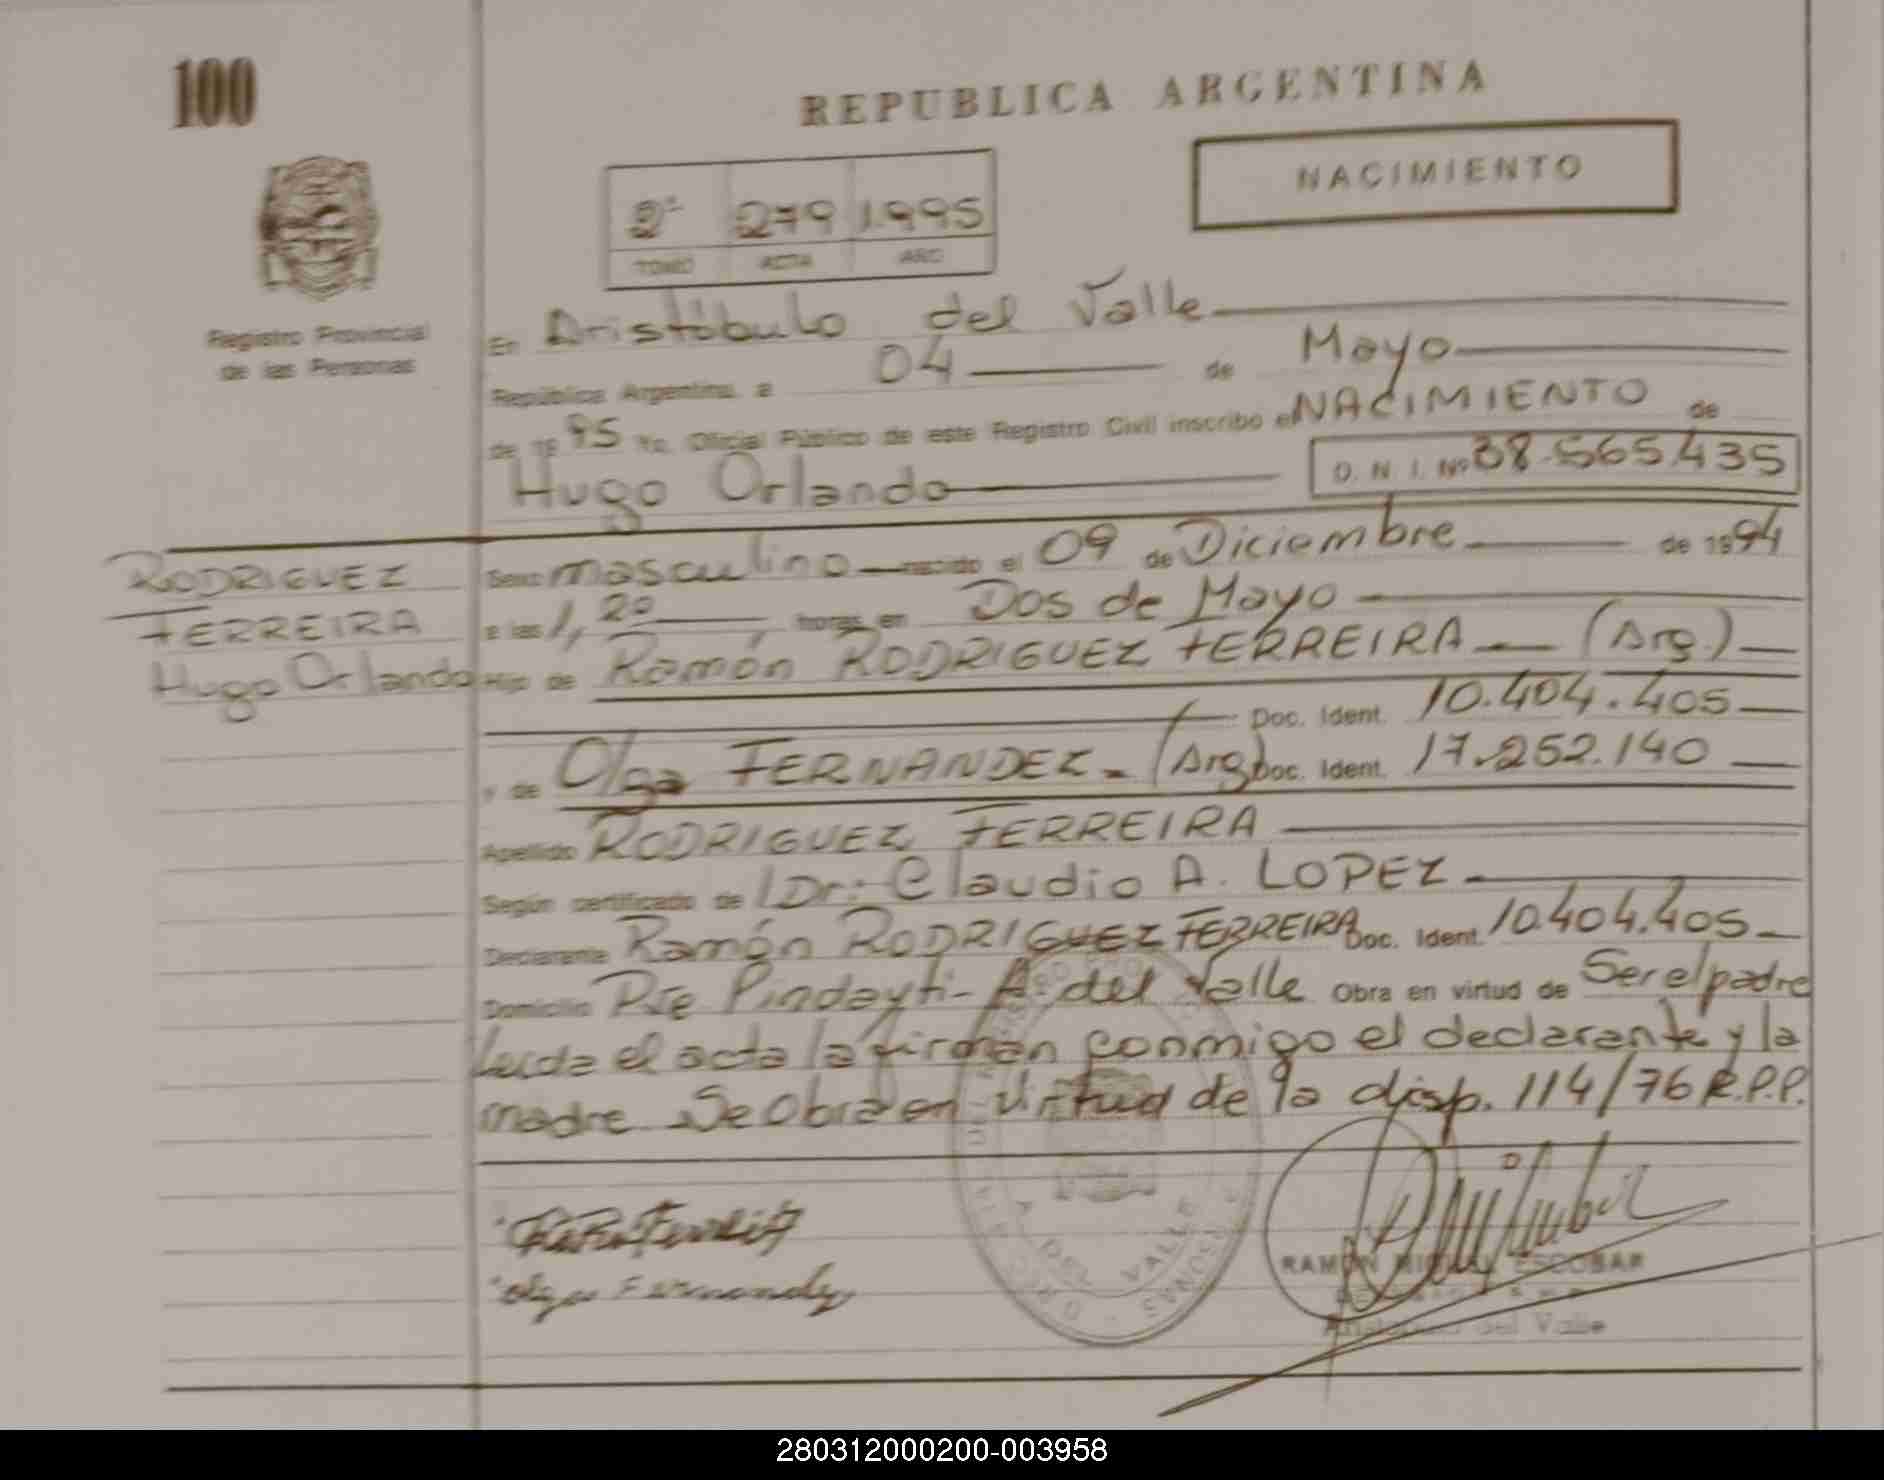 100
REPUBLICA ARGENTINA
NACIMIENTO
2º 279 1.995
TOMO ACTA AÑO
Registro Provincial
de las Personas
En Aristóbulo del Valle
República Argentina, a 04 de Mayo
de 19 95 Yo, Oficial Público de este Registro Civil inscribo el NACIMIENTO de
Hugo Orlando D. N. I. Nº 38.565.435
RODRIGUEZ
FERREIRA
Hugo Orlando
Sexo masculino nacido el 09 de Diciembre de 1994
a las 1,20 horas en Dos de Mayo
Hijo de Ramón RODRIGUEZ FERREIRA (Arg.)
Doc. Ident. 10.404.405
y de Olga FERNANDEZ. (Arg) Doc. Ident. 17.252.140
Apellido RODRIGUEZ FERREIRA
Según certificado de Dr: Claudio A. LOPEZ
Declarante Ramón RODRIGUEZ FERREIRA Doc. Ident. 10.404.405
Domicilio Pje Pindayti - A. del Valle Obra en virtud de Ser el padre
Leida el acta la firman conmigo el declarante y la
madre. Se Obra en virtud de la disp. 114/76 R.P.P.
Olga Fernandez
RAMON MIGUEL ESCOBAR
Aristóbulo del Valle
A. DEL VALLE
280312000200-003958